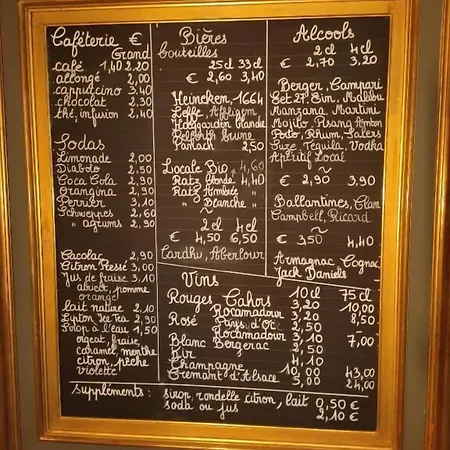 Caféterie €
Grand
café 1,40 2,20
allongé 2,00
cappuccino 3,40
chocolat 2,30
thé, infusion 2,40
Sodas
Limonade 2,00
Diabolo 2,50
Coca Cola 2,90
Orangina 2,90
Perrier 3,10
Schweppes 2,60
" agrums 2,90
Cacolac 2,90
Citron Pressé 3,00
Jus de fraise 3,10
abricot, pomme
orange
lait nature 2,10
Lipton Ice Tea 2,90
Sirop à l'eau 1,50
orgeat, fraise,
caramel, menthe
citron, pêche
violette
Bières
bouteilles
25cl 33cl
€ 2,60 3,40
Heineken, 1664
Leffe, Affligem
Hoegaarden blanche
Pelforth brune
Panach 2,50
Locale Bio 4,60
Ratz Blonde 4,40
Ratz Ambrée
" Blanche "
~
2 cl 4 cl
€ 4,50 6,50
Cardhu, Aberlour
Alcools
2 cl 4 cl
€ 2,70 3,20
Berger, Campari
Get 27, Gin, Malibu
Manzana, Martini
Mojito, Pisang Ambon
Porto, Rhum, Salers
Suze, Tequila, Vodka
Apéritif Local
~
€ 2,90 3,90
Ballantines, Clan
Campbell, Ricard
~
€ 3,50 4,40
Armagnac Cognac
Jack Daniels
Vins
10 cl 75 cl
Rouges Cahors 3,20 10,00
Rocamadour 3,20 8,50
Rosé Pays d'Oc 2,50
Rocamadour 3,10 7,00
Blanc Bergerac 2,50
Kir 4,10
Champagne 10,00 43,00
Crémant d'Alsace 5,00 24,00
suppléments : sirop, rondelle citron, lait 0,50 €
soda ou jus 2,10 €